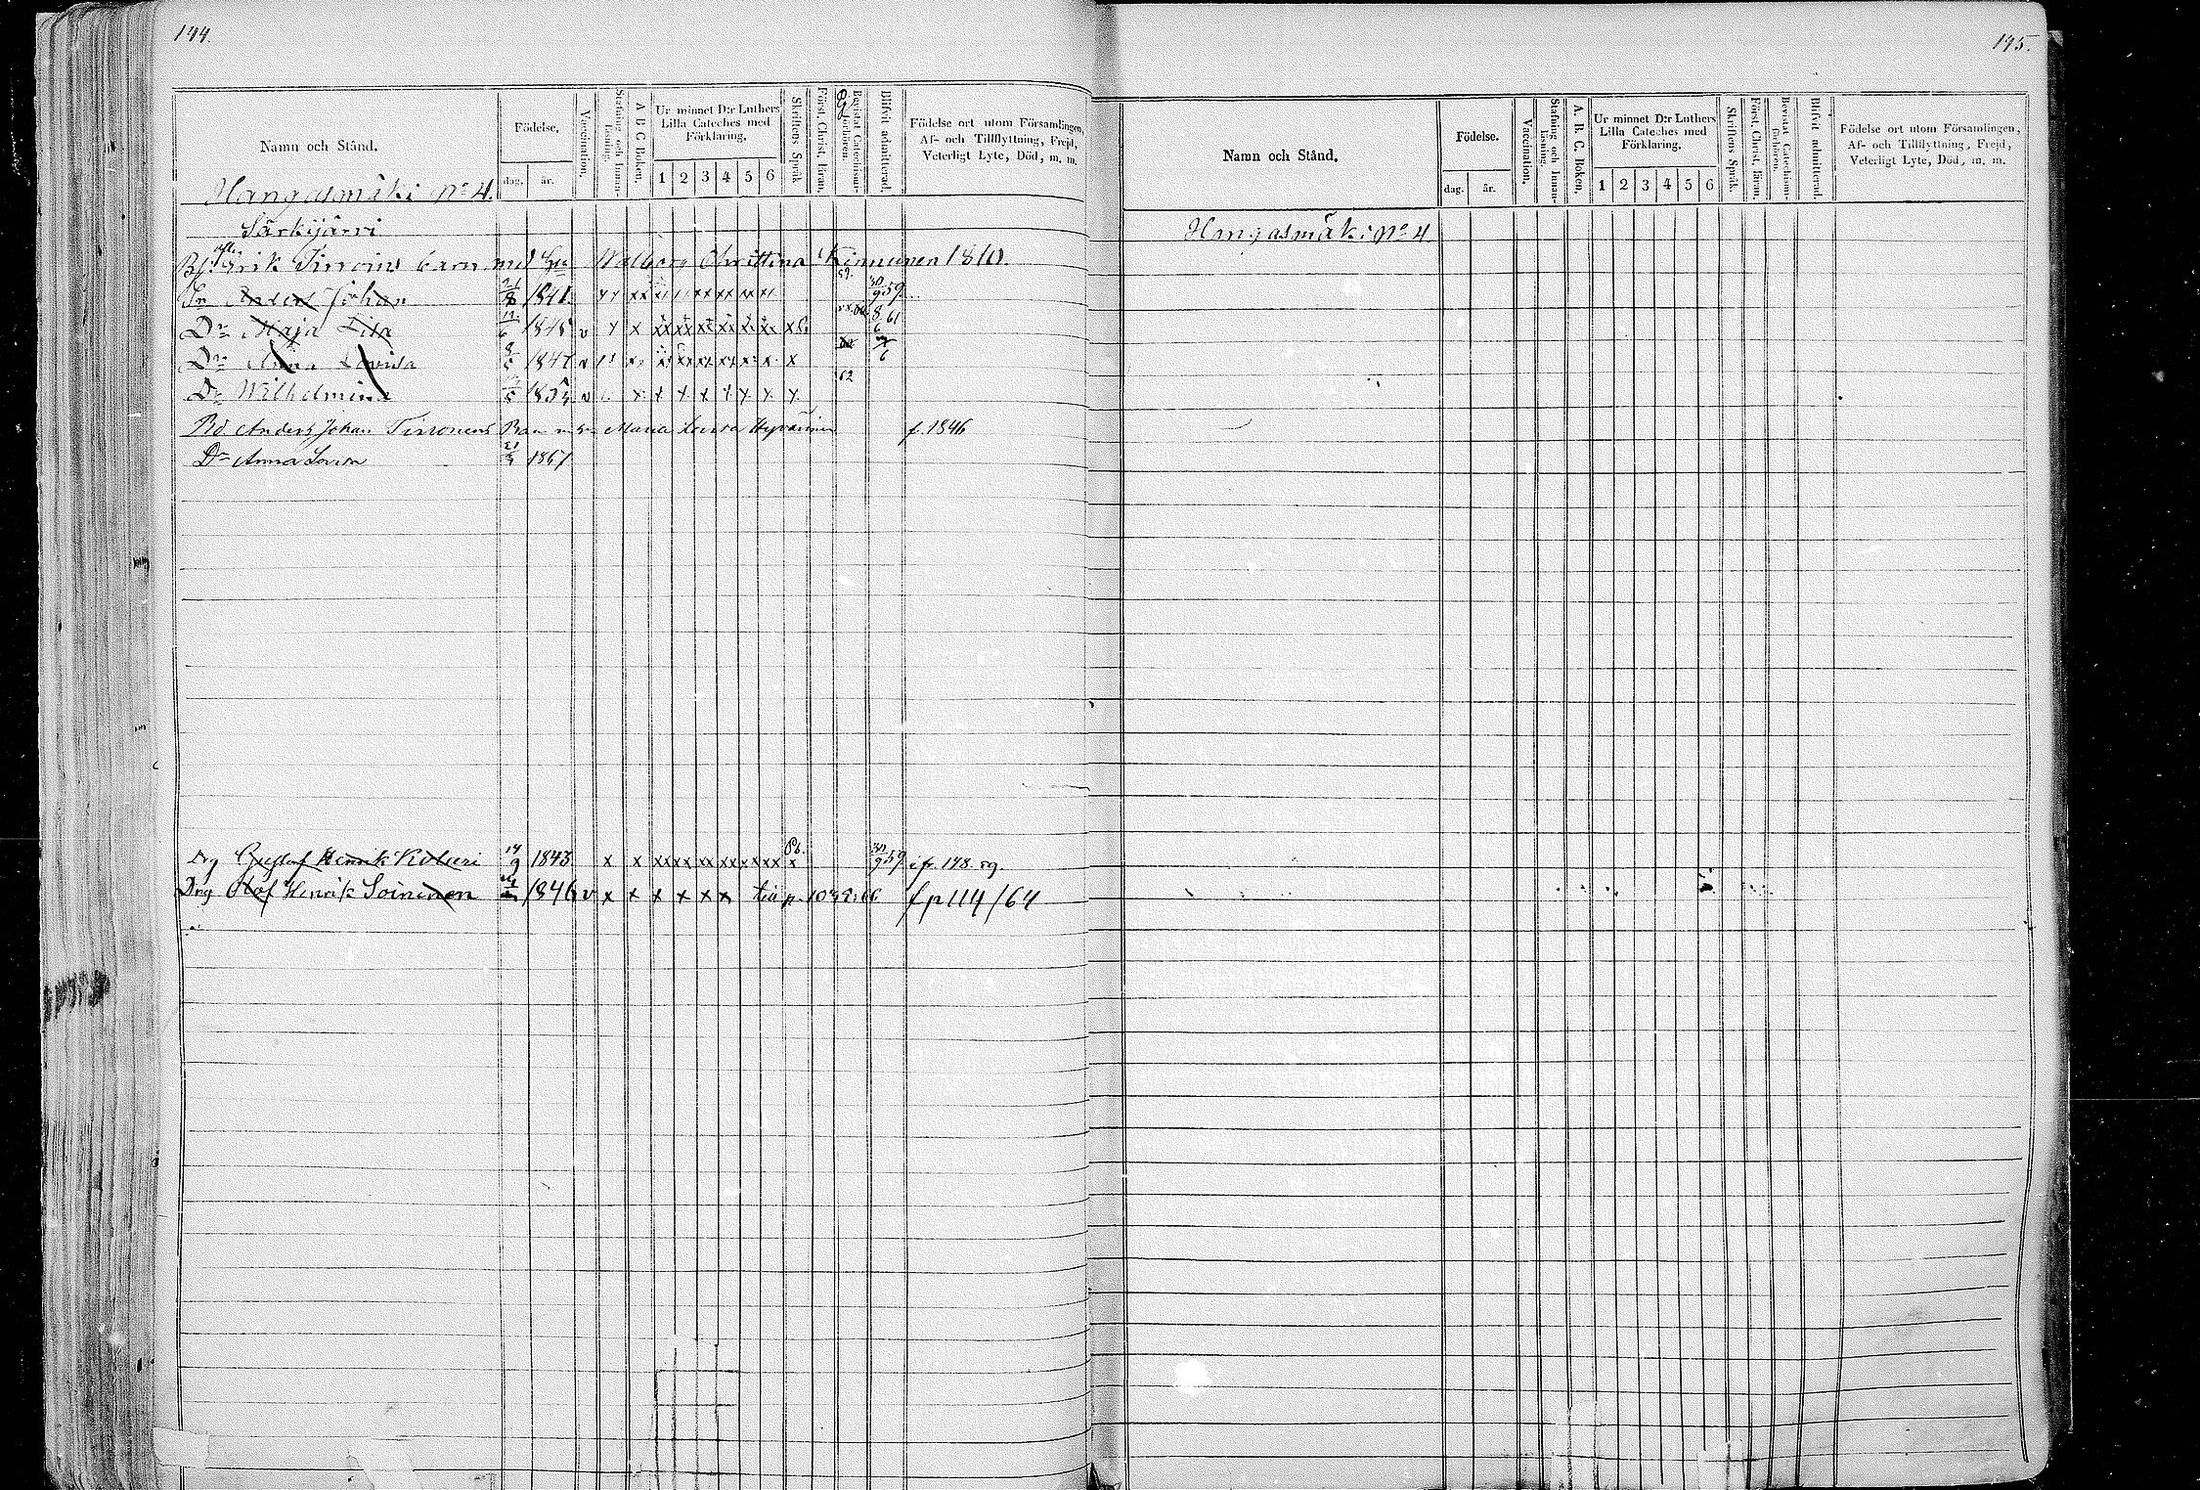 144.
Namn och Stånd.
Födelse.
dag. år.
Vaccination.
Stafning och Innan-läsning.
A B C Boken.
Ur minnet D:r Luthers Lilla Cateches med Förklaring.
1 2 3 4 5 6
Skriftens Språk
Först. Christ. läran.
Bevistat Catechismi-förhören.
Blifvit admitterad.
Födelse ort utom Församlingen,
Af- och Tillflyttning, Frejd,
Veterligt Lyte, Död, m. m.
Hangasmäki No 4.
Särkijärvi
Erik Tirroins barn med Hu Walborg Christina Kinnunen 1810.
Sn Anders Johan 1841. x x x x x x 30/9 59.
Dr Maja Lisa 12/6 1845 v x x xx xx xx xx xx xx x 8/6 61
Dr Anna Lovisa 1847 v x
Dr Wilhelmina v x x x x x x x 62
Bd Anders Johan Tirronens Barn m hu Maria Lovisa Hyvärinen f. 1846
Dr Anna Lovisa 1867
Drg Gustaf Henrik Kolari 14/9 1843. x x xx xx xx xx xx xx x 30/9 59 ifr. 198. 59.
Drg Olof Henrik Soininen 1846 v x x x x x x f p 114/64
145.
Namn och Stånd.
Födelse.
dag. år.
Vaccination.
Stafning och Innan-läsning.
A. B. C. Boken.
Ur minnet D:r Luthers Lilla Cateches med Förklaring.
1 2 3 4 5 6
Skriftens Språk.
Först. Christ. läran.
Bevistat Catechismi-förhören.
Blifvit admitterad.
Födelse ort utom Församlingen,
Af- och Tillflyttning, Frejd,
Veterligt Lyte, Död, m. m.
Hangasmäki No 4.